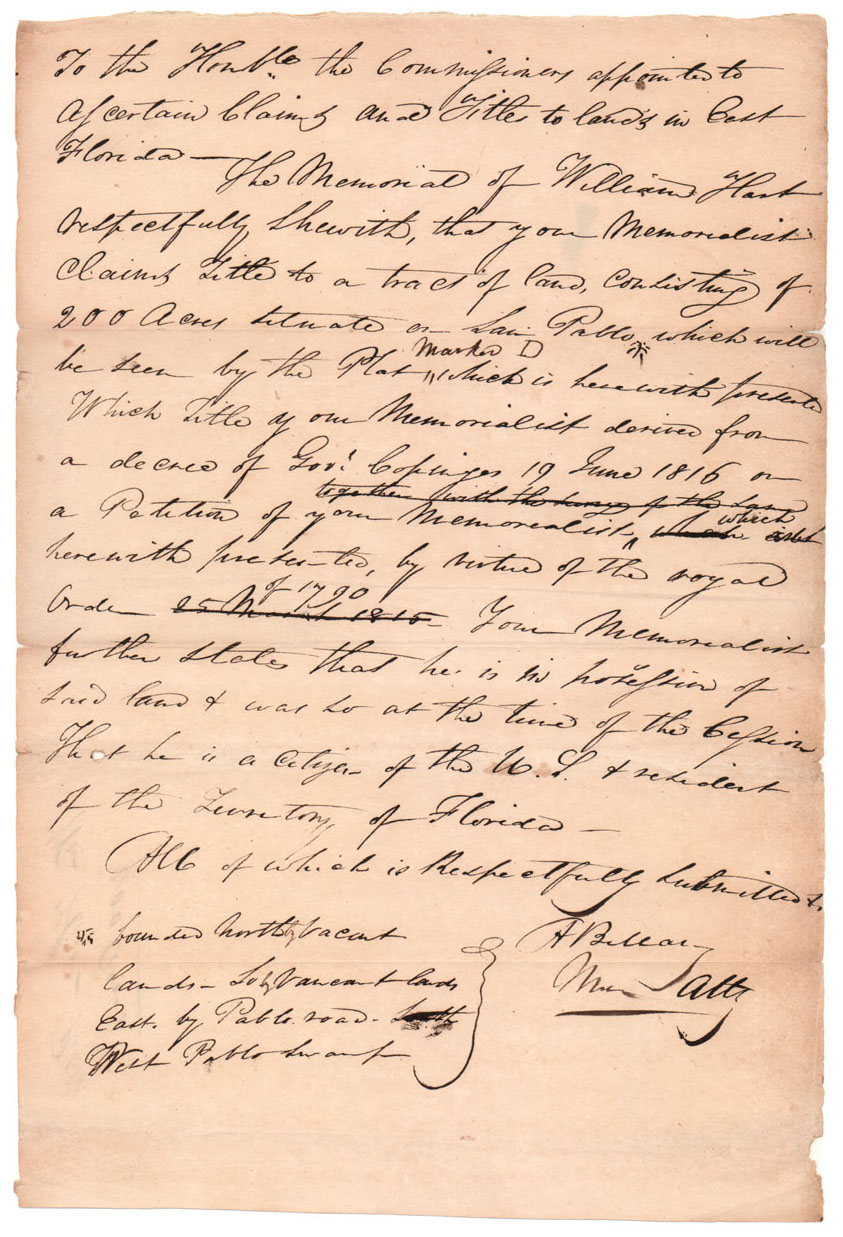 To the Honble. the Commissioners appointed to
Ascertain Claims and Titles to lands in East
Florida — The Memorial of William Hart
respectfully Shewith, that your Memorialist
Claims Title to a tract of land, Consisting of
200 Acres situate on San Pablo which will
be seen by the Plat Marked D which is herewith presented
Which Title your Memorialist derived from
a decree of Govr. Copinger 19 June 1816 on
together with the survey of the land
a Petition of your Memorialist, which
herewith presented, by virtue of the royal
of 1790
Order 25 March 1815 – Your Memorialist
further states that he is in possession of
said land & was so at the time of the Cession
That he is a citizen of the U.S. & resident
of the Territory of Florida —
All of which is Respectfully submitted &.
bounded North by Vacant
lands – So by Vancant lands
East. by Pablo road – South
West Pablo Swamp
A Bellamy
Atty